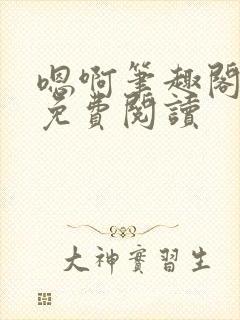 嗯啊筆趣閣
免費閱讀
大神實習生